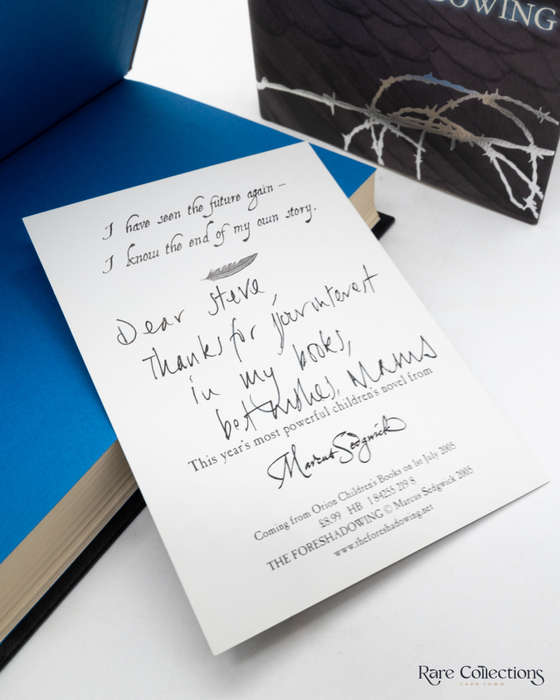 OWING
I have seen the future again –
I know the end of my own story.
Dear Steve,
Thanks for your interest
in my books,
best wishes, Marcus
This year's most powerful children's novel from
Marcus Sedgwick
Coming from Orion Children's Books on 1st July 2005
£8.99 HB 1 84255 219 8
THE FORESHADOWING © Marcus Sedgwick 2005
www.theforeshadowing.net
Rare Collections